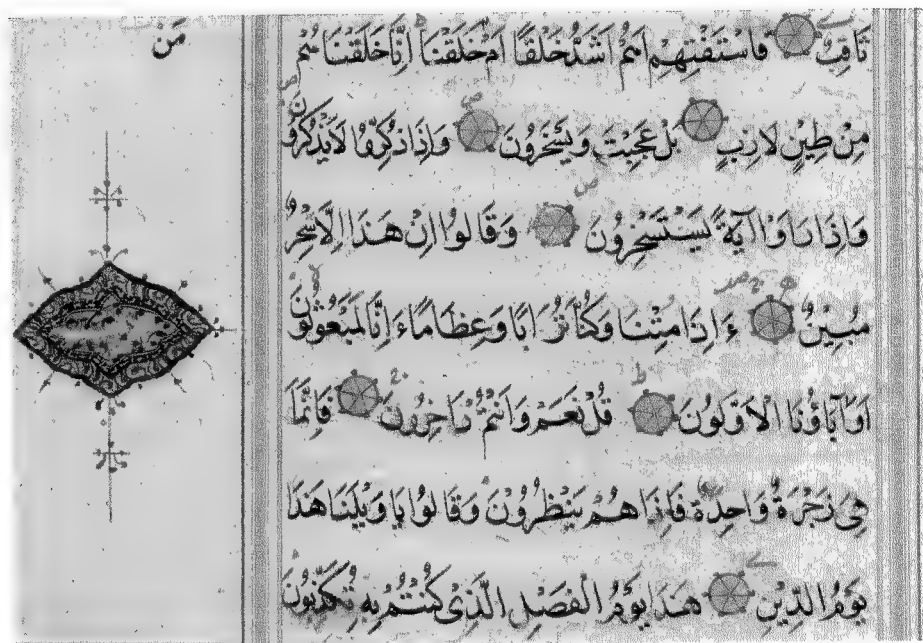 مَنْ
ثَاقِبٌ فَاسْتَفْتِهِمْ اَهُمْ اَشَدُّ خَلْقًا اَمْ خَلَقْنَا اِنَّا خَلَقْنَاهُمْ
مِنْ طِينٍ لَازِبٍ بَلْ عَجِبْتَ وَيَسْخَرُونَ وَاِذَا ذُكِّرُوا لَا يَذْكُرُونَ
وَاِذَا رَاَوْا آيَةً يَسْتَسْخِرُونَ وَقَالُوا اِنْ هَذَا اِلَّا سِحْرٌ
مُبِينٌ ءَاِذَا مِتْنَا وَكُنَّا تُرَابًا وَعِظَامًا ءَاِنَّا لَمَبْعُوثُونَ
اَوَآبَاؤُنَا الْاَوَّلُونَ قُلْ نَعَمْ وَاَنْتُمْ دَاخِرُونَ فَاِنَّمَا
هِيَ زَجْرَةٌ وَاحِدَةٌ فَاِذَا هُمْ يَنْظُرُونَ وَقَالُوا يَا وَيْلَنَا هَذَا
يَوْمُ الدِّينِ هَذَا يَوْمُ الْفَصْلِ الَّذِى كُنْتُمْ بِهِ تُكَذِّبُونَ